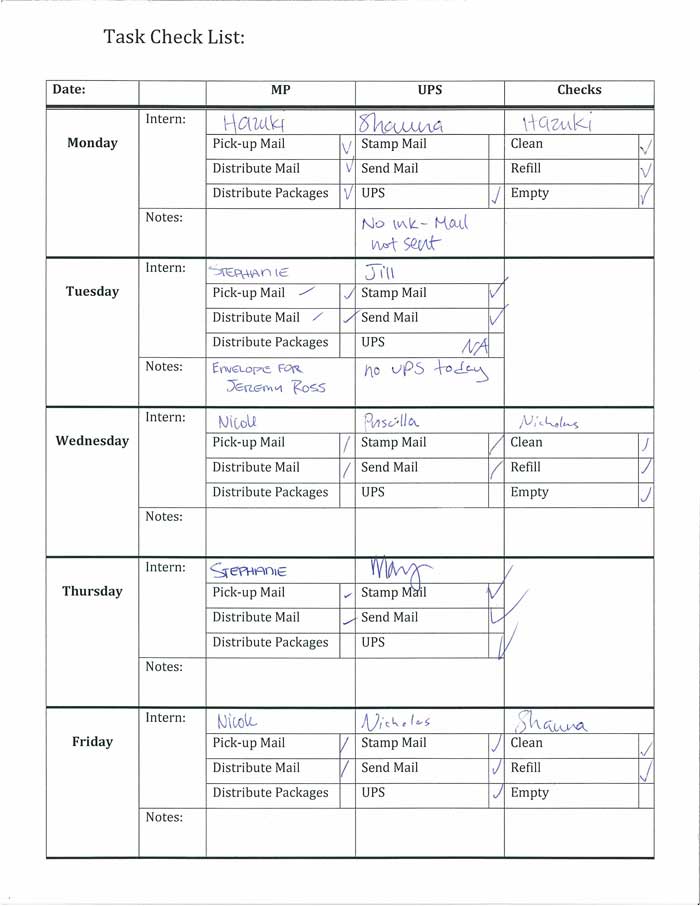 Task Check List:
Date: MP UPS Checks
Monday Intern: Hazuki Shauna Hazuki
Pick-up Mail ✓ Stamp Mail Clean ✓
Distribute Mail ✓ Send Mail Refill ✓
Distribute Packages ✓ UPS ✓ Empty ✓
Notes: No ink - Mail
not sent
Tuesday Intern: STEPHANIE Jill
Pick-up Mail ✓ Stamp Mail ✓
Distribute Mail ✓ Send Mail ✓
Distribute Packages UPS NA
Notes: ENVELOPE FOR no UPS today
JEREMY ROSS
Wednesday Intern: Nicole Priscilla Nicholas
Pick-up Mail / Stamp Mail / Clean ✓
Distribute Mail / Send Mail / Refill ✓
Distribute Packages UPS Empty ✓
Notes:
Thursday Intern: STEPHANIE Mary
Pick-up Mail ✓ Stamp Mail ✓
Distribute Mail ✓ Send Mail ✓
Distribute Packages UPS ✓
Notes:
Friday Intern: Nicole Nicholas Shauna
Pick-up Mail / Stamp Mail ✓ Clean ✓
Distribute Mail / Send Mail ✓ Refill ✓
Distribute Packages UPS ✓ Empty
Notes: